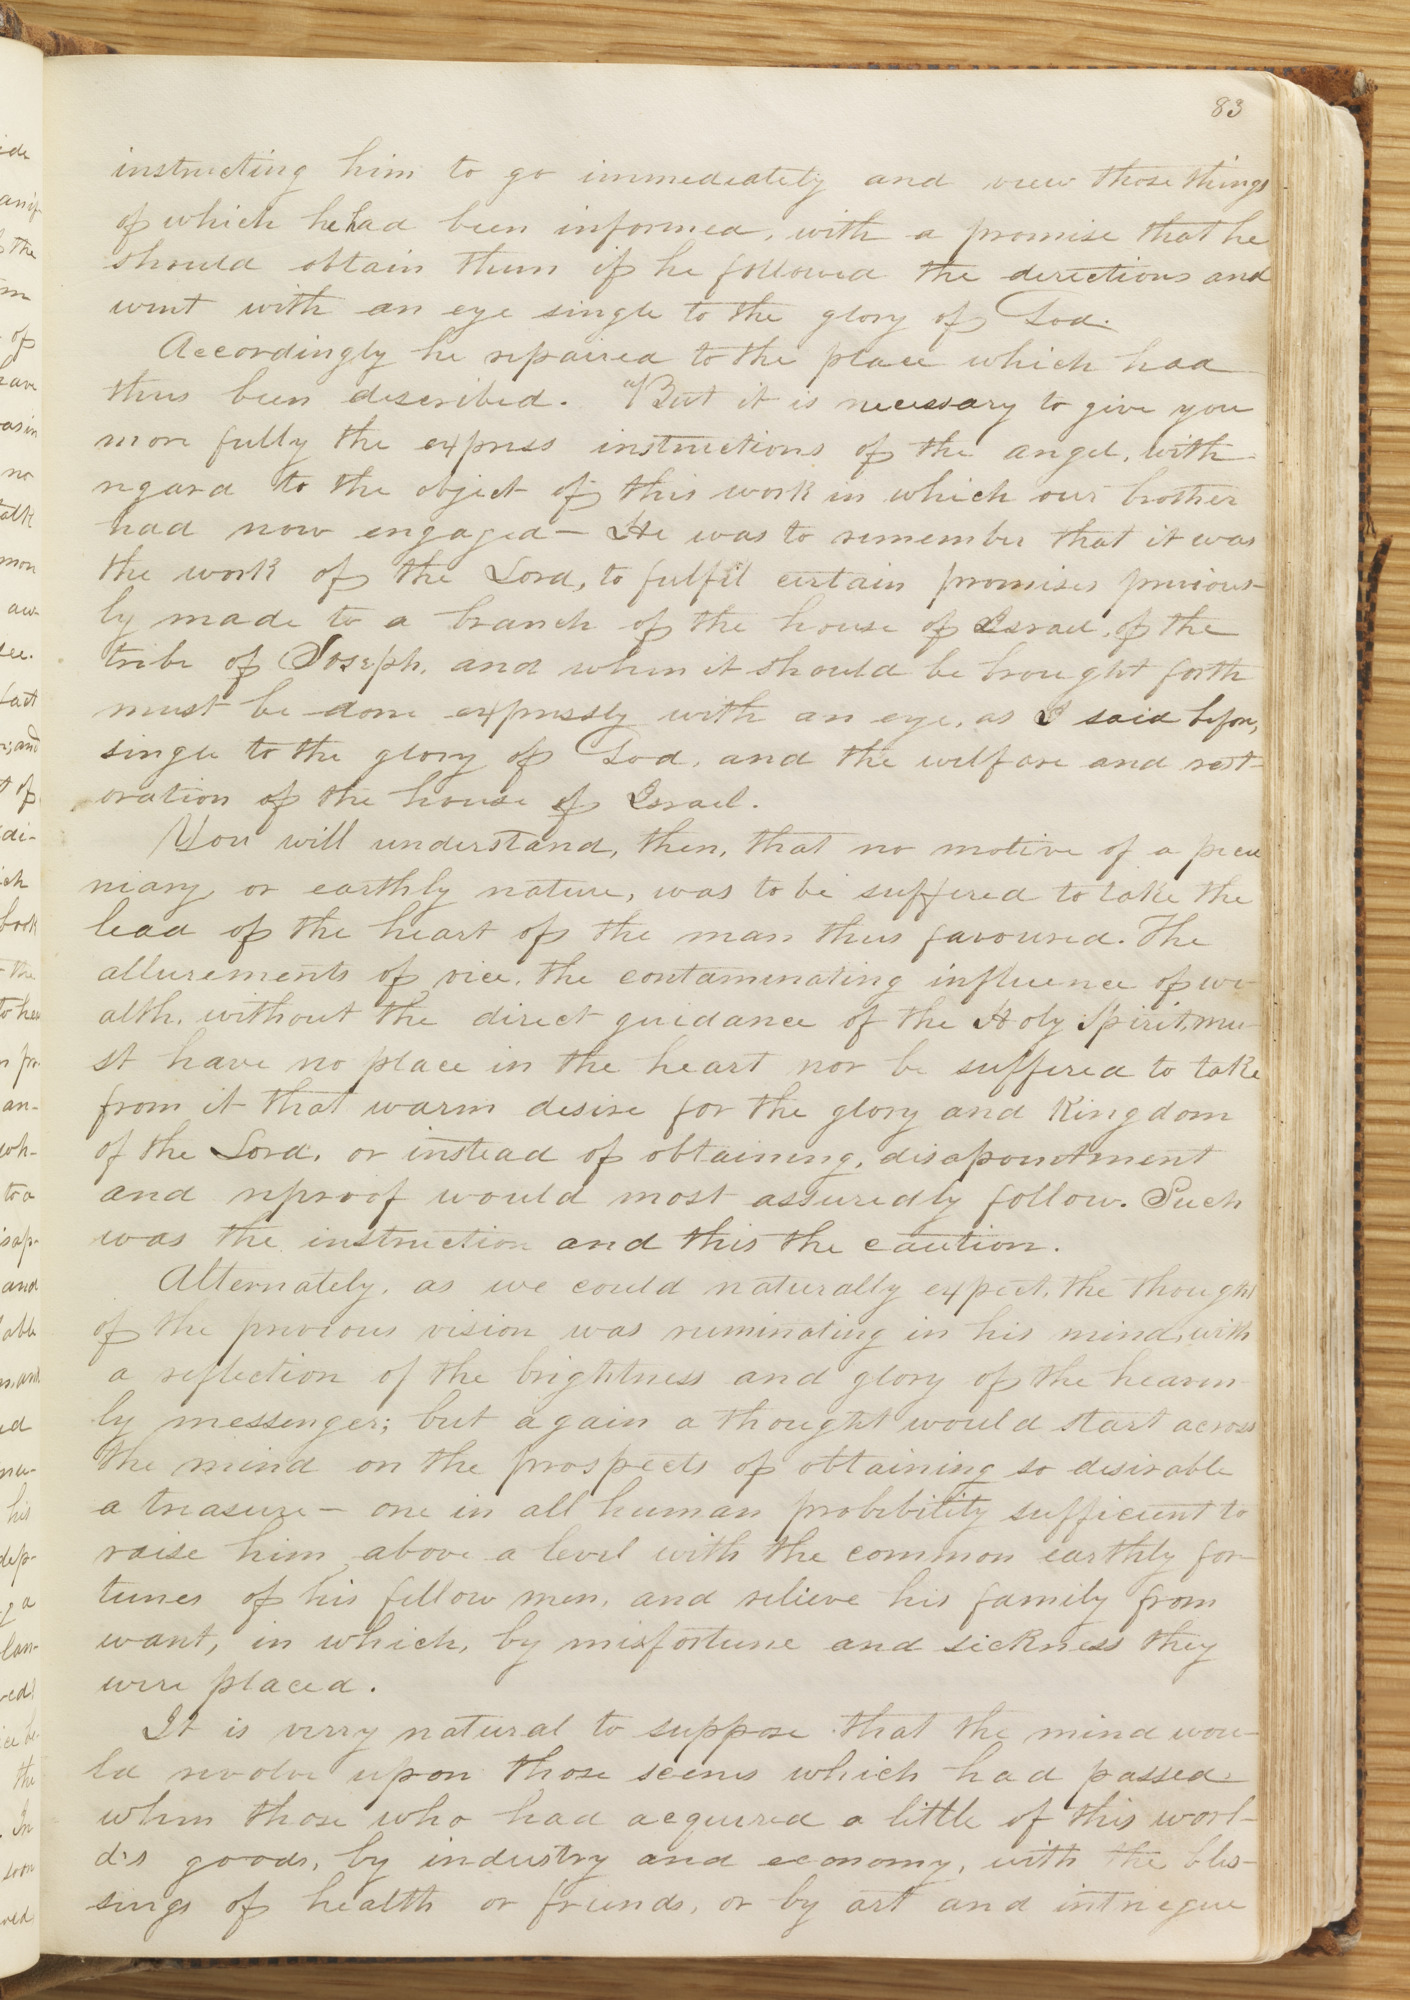 83
instructing him to go immediately and view those things
of which he had been informed, with a promise that he
should obtain them if he followed the directions and
went with an eye single to the glory of God.
Accordingly he repaired to the place which had
thus been described. But it is necessary to give you
more fully the express instructions of the angel, with
regard to the object of this work in which our brother
had now engaged— He was to remember that it was
the work of the Lord, to fulfil certain promises previous-
ly made to a branch of the house of Israel, of the
tribe of Joseph, and when it should be brought forth
must be done expressly with an eye, as I said before,
single to the glory of God, and the welfare and rest-
oration of the house of Israel.
You will understand, then, that no motive of a pecu
niary, or earthly nature, was to be suffered to take the
lead of the heart of the man thus favoured. The
allurements of vice, the contaminating influence of we-
alth, without the direct guidance of the Holy Spirit, mu-
st have no place in the heart nor be suffered to take
from it that warm desire for the glory and Kingdom
of the Lord, or instead of obtaining, disapointment
and reproof would most assuredly follow. Such
was the instruction and this the caution.
Alternately, as we could naturally expect, the thought
of the previous vision was ruminating in his mind, with
a reflection of the brightness and glory of the heaven-
ly messenger; but again a thought would start across
the mind on the prospects of obtaining so desirable
a treasure— one in all human probibility sufficient to
raise him above a level with the common earthly for-
tunes of his fellow men, and relieve his family from
want, in which, by misfortune and sickness they
were placed.
It is verry natural to suppose that the mind wou-
ld revolve upon those scenes which had passed
when those who had acquired a little of this worl-
d's goods, by industry and economy, with the bles-
sings of health or friends, or by art and intriegue